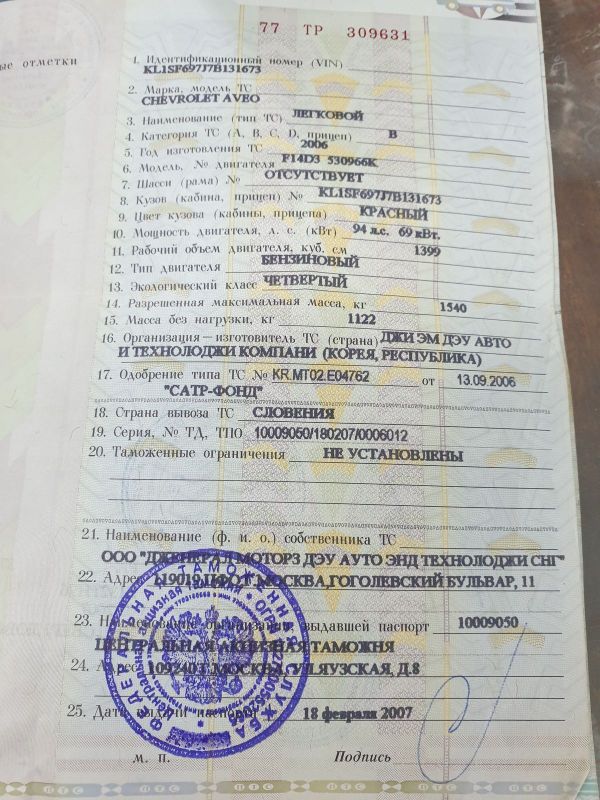 77 ТР 309631
ые отметки
1. Идентификационный номер (VIN)
KL1SF697J7B131673
2. Марка, модель ТС
CHEVROLET AVEO
3. Наименование (тип ТС) ЛЕГКОВОЙ
4. Категория ТС (A, B, C, D, прицеп) B
5. Год изготовления ТС 2006
6. Модель, № двигателя F14D3 530966K
7. Шасси (рама) № ОТСУТСТВУЕТ
8. Кузов (кабина, прицеп) № KL1SF697J7B131673
9. Цвет кузова (кабины, прицепа) КРАСНЫЙ
10. Мощность двигателя, л. с. (кВт) 94 л.с. 69 кВт.
11. Рабочий объем двигателя, куб. см 1399
12. Тип двигателя БЕНЗИНОВЫЙ
13. Экологический класс ЧЕТВЕРТЫЙ
14. Разрешенная максимальная масса, кг 1540
15. Масса без нагрузки, кг 1122
16. Организация—изготовитель ТС (страна) ДЖИ ЭМ ДЭУ АВТО
И ТЕХНОЛОДЖИ КОМПАНИ (КОРЕЯ, РЕСПУБЛИКА)
17. Одобрение типа ТС № KR.MT02.E04762 от 13.09.2006
"САТР-ФОНД"
18. Страна вывоза ТС СЛОВЕНИЯ
19. Серия, № ТД, ТПО 10009050/180207/0006012
20. Таможенные ограничения НЕ УСТАНОВЛЕНЫ
21. Наименование (ф. и. о.) собственника ТС
ООО "ДЖЕНЕРАЛ МОТОРЗ ДЭУ АУТО ЭНД ТЕХНОЛОДЖИ СНГ"
22. Адрес 119019, Г. МОСКВА, ГОГОЛЕВСКИЙ БУЛЬВАР, 11
23. Наименование организации, выдавшей паспорт 10009050
ЦЕНТРАЛЬНАЯ АКЦИЗНАЯ ТАМОЖНЯ
24. Адрес 109240 Г. МОСКВА, УЛ.ЯУЗСКАЯ, Д.8
25. Дата выдачи паспорта 18 февраля 2007
ФЕДЕРАЛЬНАЯ ТАМОЖЕННАЯ СЛУЖБА
М. П. Подпись
ПТС ПТС ПТС ПТС